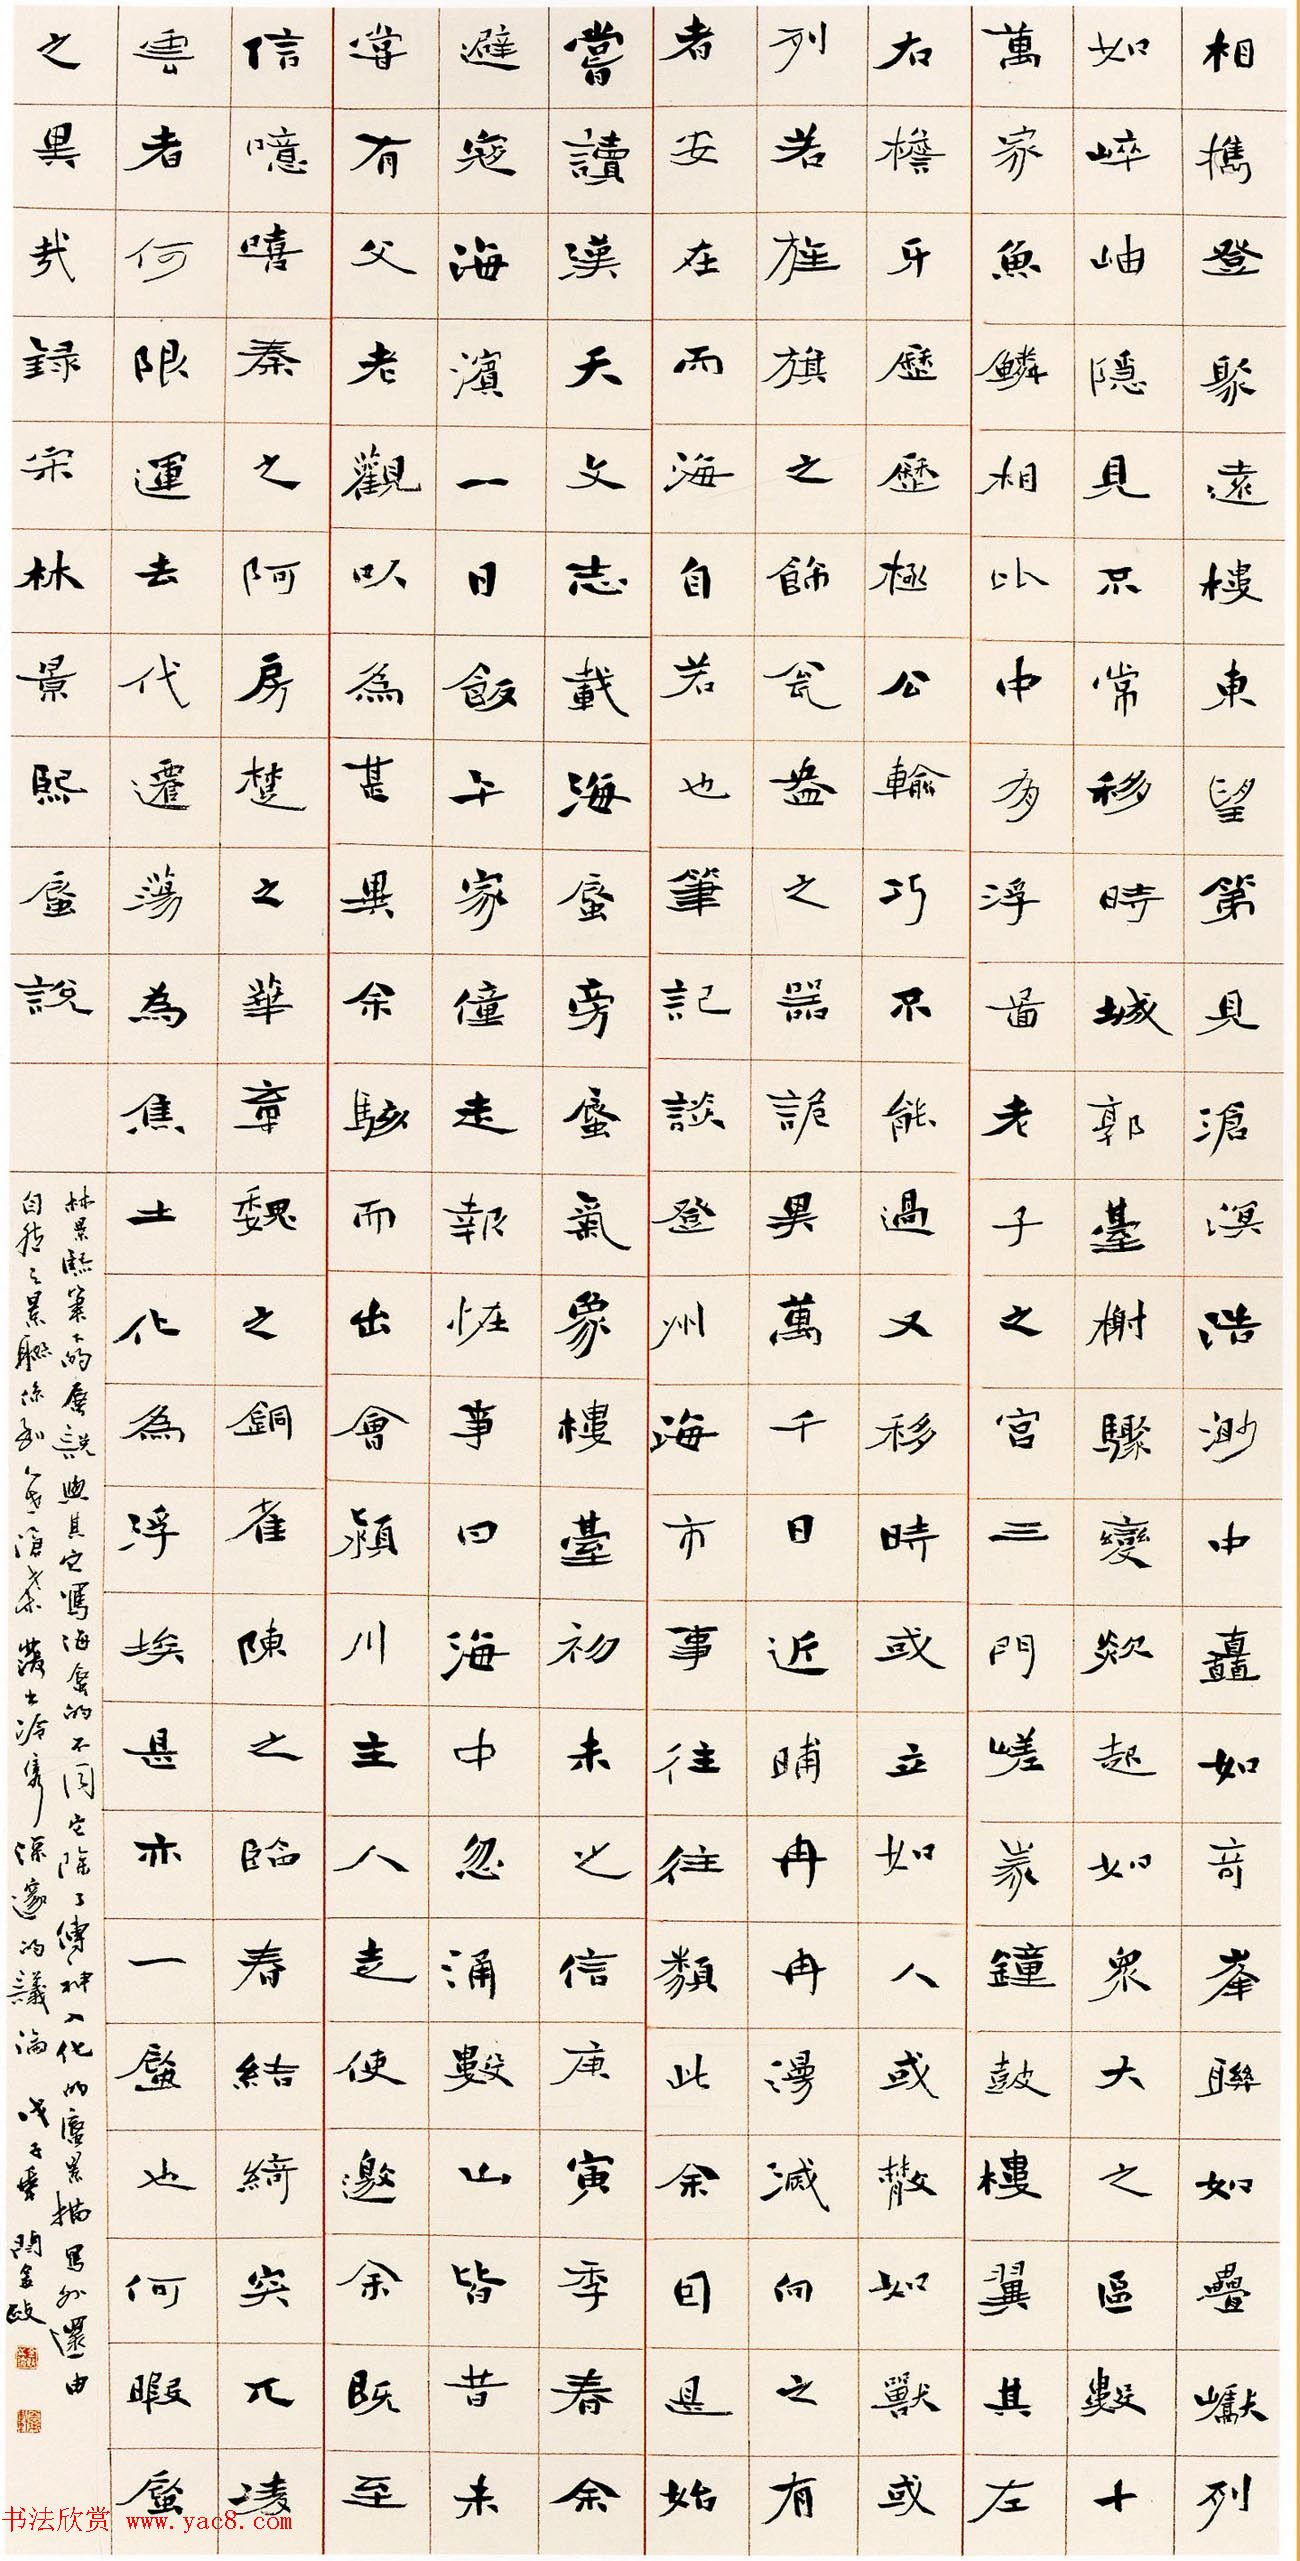 相攜登聚遠樓東望第見滄溟浩渺中矗如奇峯聯如疊巘列
如崪岫隱見不常移時城郭臺榭驟變欻起如眾大之區數十
萬家魚鱗相比中有浮啚老子之宮三門嵯峩鐘鼓樓翼其左
右檐牙歷歷極公輸巧不能過又移時或立如人或散如獸或
列若旌旗之飾瓮盎之器詭異萬千日近晡冉冉漫滅向之有
者安在而海自若也筆記談登州海市事往往類此余因是始
嘗讀漢天文志載海蜃旁蜃氣象樓臺初未之信庚寅季春余
避寇海濱一日飯午家僮走報怪事曰海中忽涌數山皆昔未
嘗有父老觀以為甚異余駭而出會潁川主人走使邀余既至
信噫嘻秦之阿房楚之華章魏之銅雀陳之臨春結綺突兀凌
雲者何限運去代遷蕩為焦土化為浮埃是亦一蜃也何暇蜃
之異哉録宋林景熙蜃說
林景熙筆下的蜃說與其它寫海蜃的不同它除了傳神入化的蜃景描寫外還由
自然之景聯係到人世滄桑發出冷雋深邃的議論 戊子
书法欣赏 www.yac8.com